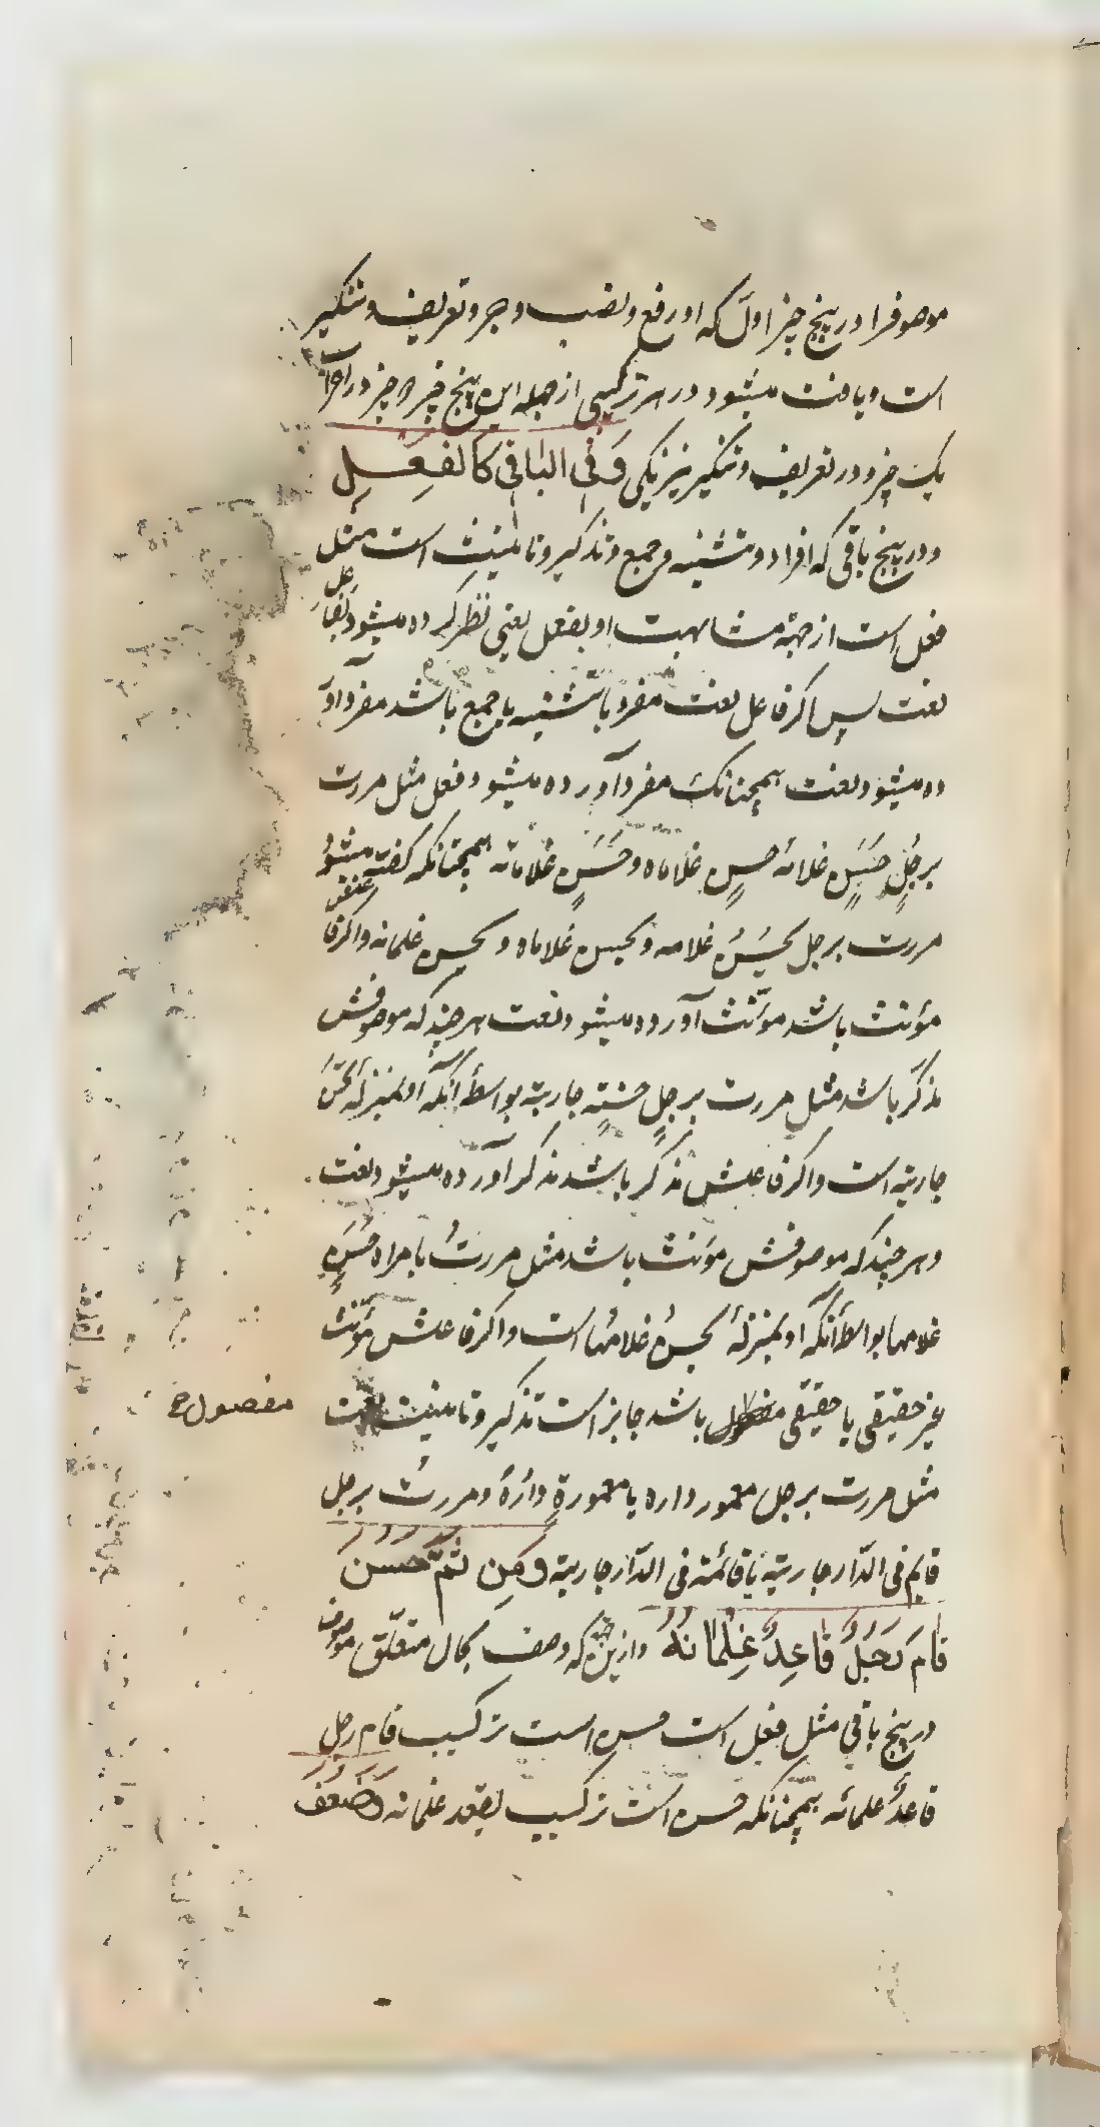 موصوفرا در پنج چیز اول که او رفع و نصب و جر و تعریف و تنکیر
است و یافت میشود در هر ترکیبی از جمله این پنج چیز دو چیز در اعراب
یک چیز و در تعریف و تنکیر نیز یکی وَفی الباقی کالفِعلِ
و در پنج باقی که افراد و تثنیه و جمع و تذکیر و تانیث است مثل
فعل است از جهة مشابهت او بفعل یعنی نظر کرده میشود بفاعل
نعت پس اگر فاعل نعت مفرد یا تثنیه یا جمع باشد مفرد آور
ده میشود نعت همچنانک مفرد آورده میشود فعل مثل مررت
برجلٍ حَسَنٍ غلامُه حسنٍ غلاماه و حَسَنٍ غلمانه همچنانکه گفته میشود
مررت برجل یَحسُنُ غلامه و یحسن غلاماه و یحسن غلمانه و اگر فاعلش
مؤنث باشد مؤنّث آورده میشود نعت هر چند که موصوفش
مذکّر باشد مثل مررت برجلٍ حسنةٍ جاریته بواسطهٔ آنکه او بمنزلهٔ تحسُنُ
جاریته است و اگر فاعلش مذکر باشد مذکر آورده میشود نعت
و هر چند که موصوفش مؤنث باشد مثل مررتُ بامراه حَسَنٍ
غلامها بواسطهٔ آنکه او بمنزلهٔ یحسنُ غلامُها است و اگر فاعلش مؤنّث
غیر حقیقی یا حقیقی مفصول باشد جایز است تذکیر و تانیث نعت
مفصول
مثل مررت برجل معمور داره یا معمورةٍ دارُهُ و مررتُ برجل
قایم فی الدّار جاریته یا قائمة فی الدّار جاریته و مَِن ثَمَّ حسن
قامَ رَجُلٌ قاعِدٌ غِلمانُهُ و ازین جهة که وصف بحال متعلّق موصوف
در پنج باقی مثل فعل است حسن است ترکیب قام رجل
قاعدٌ غلمانُه همچنانکه حسن است ترکیب یقعد غلمانه وضعف